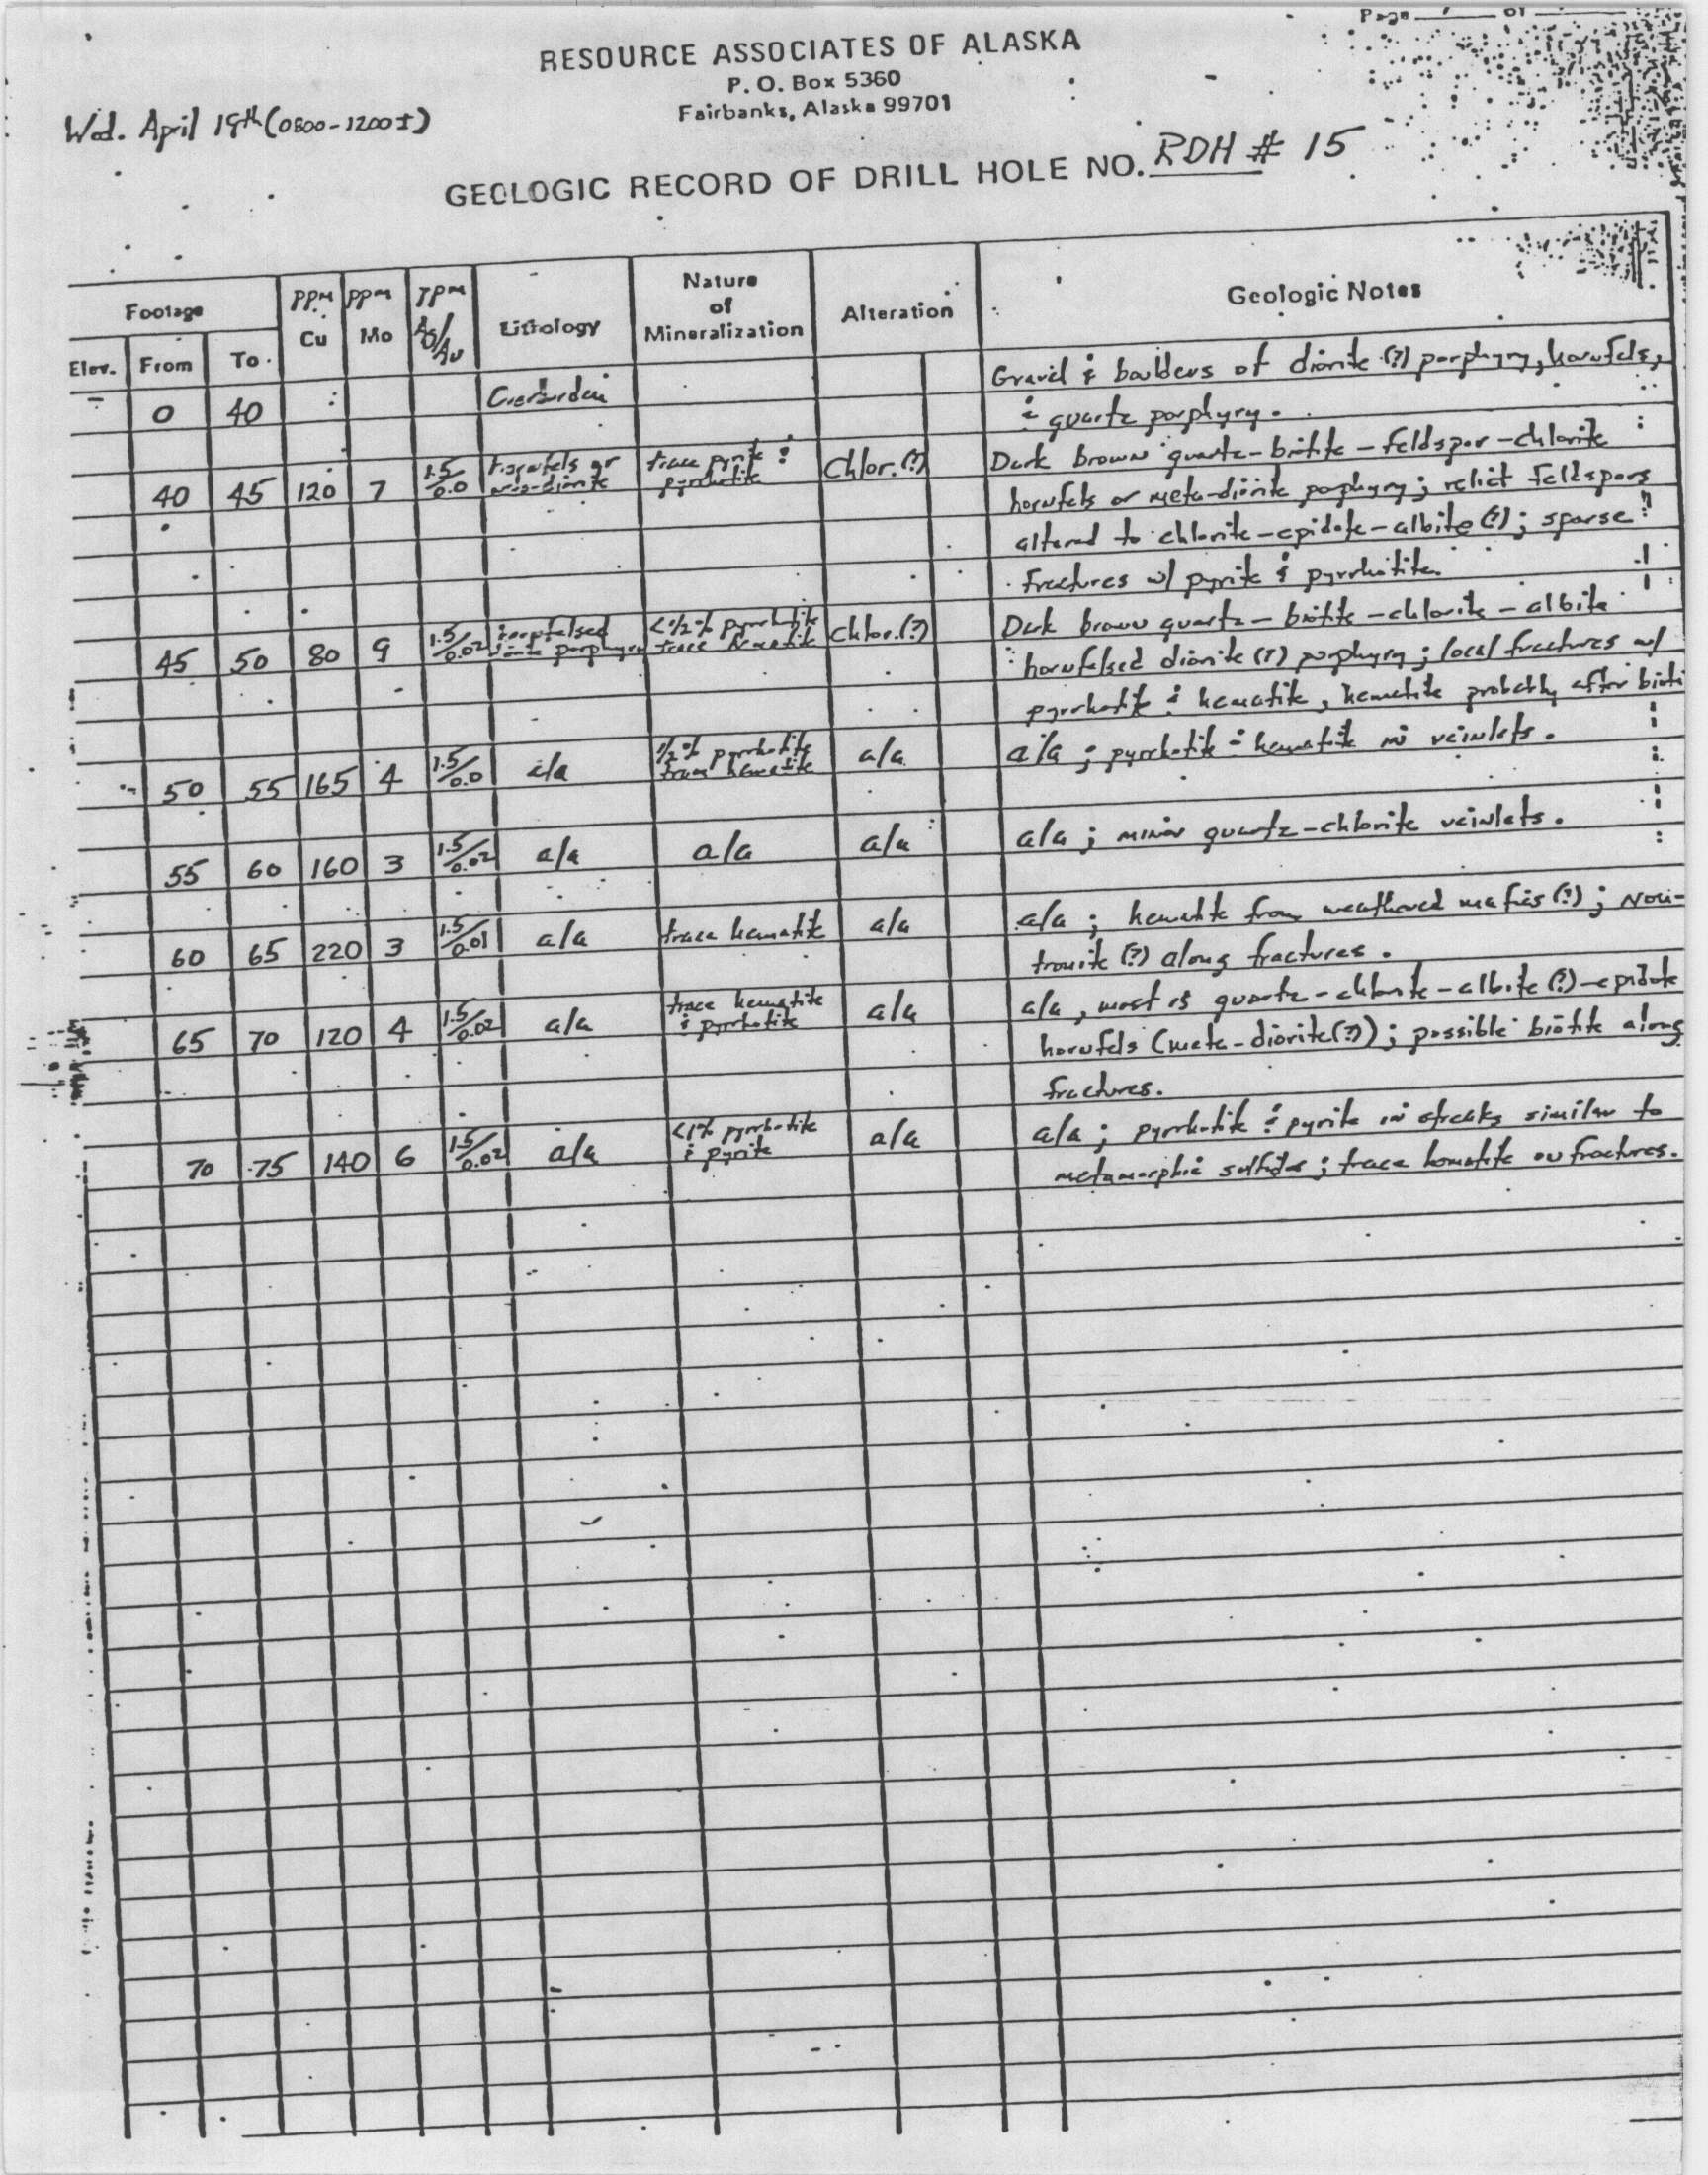 Page 1 of
RESOURCE ASSOCIATES OF ALASKA
P. O. Box 5360
Fairbanks, Alaska 99701
Wed. April 19th (0800-1200±)
GEOLOGIC RECORD OF DRILL HOLE NO. RDH # 15
Footage PPM Cu PPM Mo PPM Ag/Au Lithology Nature of Mineralization Alteration Geologic Notes
Elev. From To
0 40 Overburden Gravel & boulders of diorite (?) porphyry, hornfels,
& quartz porphyry.
40 45 120 7 1.5/0.0 hornfels or meta-diorite trace pyrite & pyrrhotite Chlor. (?) Dark brown quartz-biotite-feldspar-chlorite
hornfels or meta-diorite porphyry; relict feldspars
altered to chlorite-epidote-albite (?); sparse
fractures w/ pyrite & pyrrhotite.
45 50 80 9 1.5/0.02 hornfelsed diorite porphyry <1/2% pyrrhotite trace hematite Chlor. (?) Dark brown quartz-biotite-chlorite-albite
hornfelsed diorite (?) porphyry; local fractures w/
pyrrhotite & hematite, hematite probably after bioti
50 55 165 4 1.5/0.0 a/a 1/2% pyrrhotite trace hematite a/a a/a; pyrrhotite & hematite in veinlets.
55 60 160 3 1.5/0.02 a/a a/a a/a a/a; minor quartz-chlorite veinlets.
60 65 220 3 1.5/0.01 a/a trace hematite a/a a/a; hematite from weathered mafics (?); Non-
tronite (?) along fractures.
65 70 120 4 1.5/0.02 a/a trace hematite & pyrrhotite a/a a/a, most is quartz-chlorite-albite (?)-epidote
hornfels (meta-diorite (?)); possible biotite along
fractures.
70 75 140 6 1.5/0.02 a/a <1% pyrrhotite & pyrite a/a a/a; pyrrhotite & pyrite in streaks similar to
metamorphic sulfides; trace hematite on fractures.